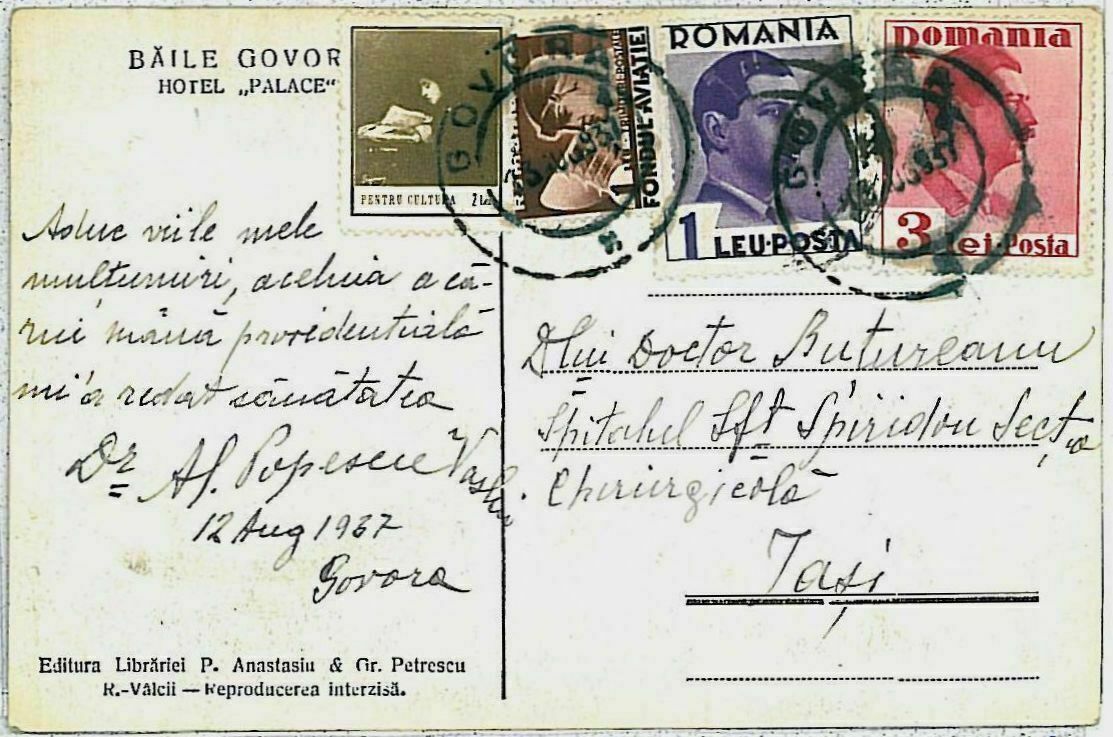 BĂILE GOVOR
HOTEL „PALACE“
PENTRU CULTURA 2 Lei
1 LEU - TIMBRUL POSTALE
FONDUL AVIAȚIEI
ROMANIA
1 LEU·POSTA
Romania
3 lei·Posta
GOVORA
GOVORA
Aduc viile mele
mulțumiri, aceluia a că-
rui mână providențială
mi'a redat sănătatea
Dr Al. Popescu Vaslui
12 Aug 1937
Govora
Dlui Doctor Butureanu
Spitalul Sft Spiridon Secția
Chirurgicală
Iași
Editura Librăriei P. Anastasiu & Gr. Petrescu
R.-Vâlcii — Reproducerea interzisă.